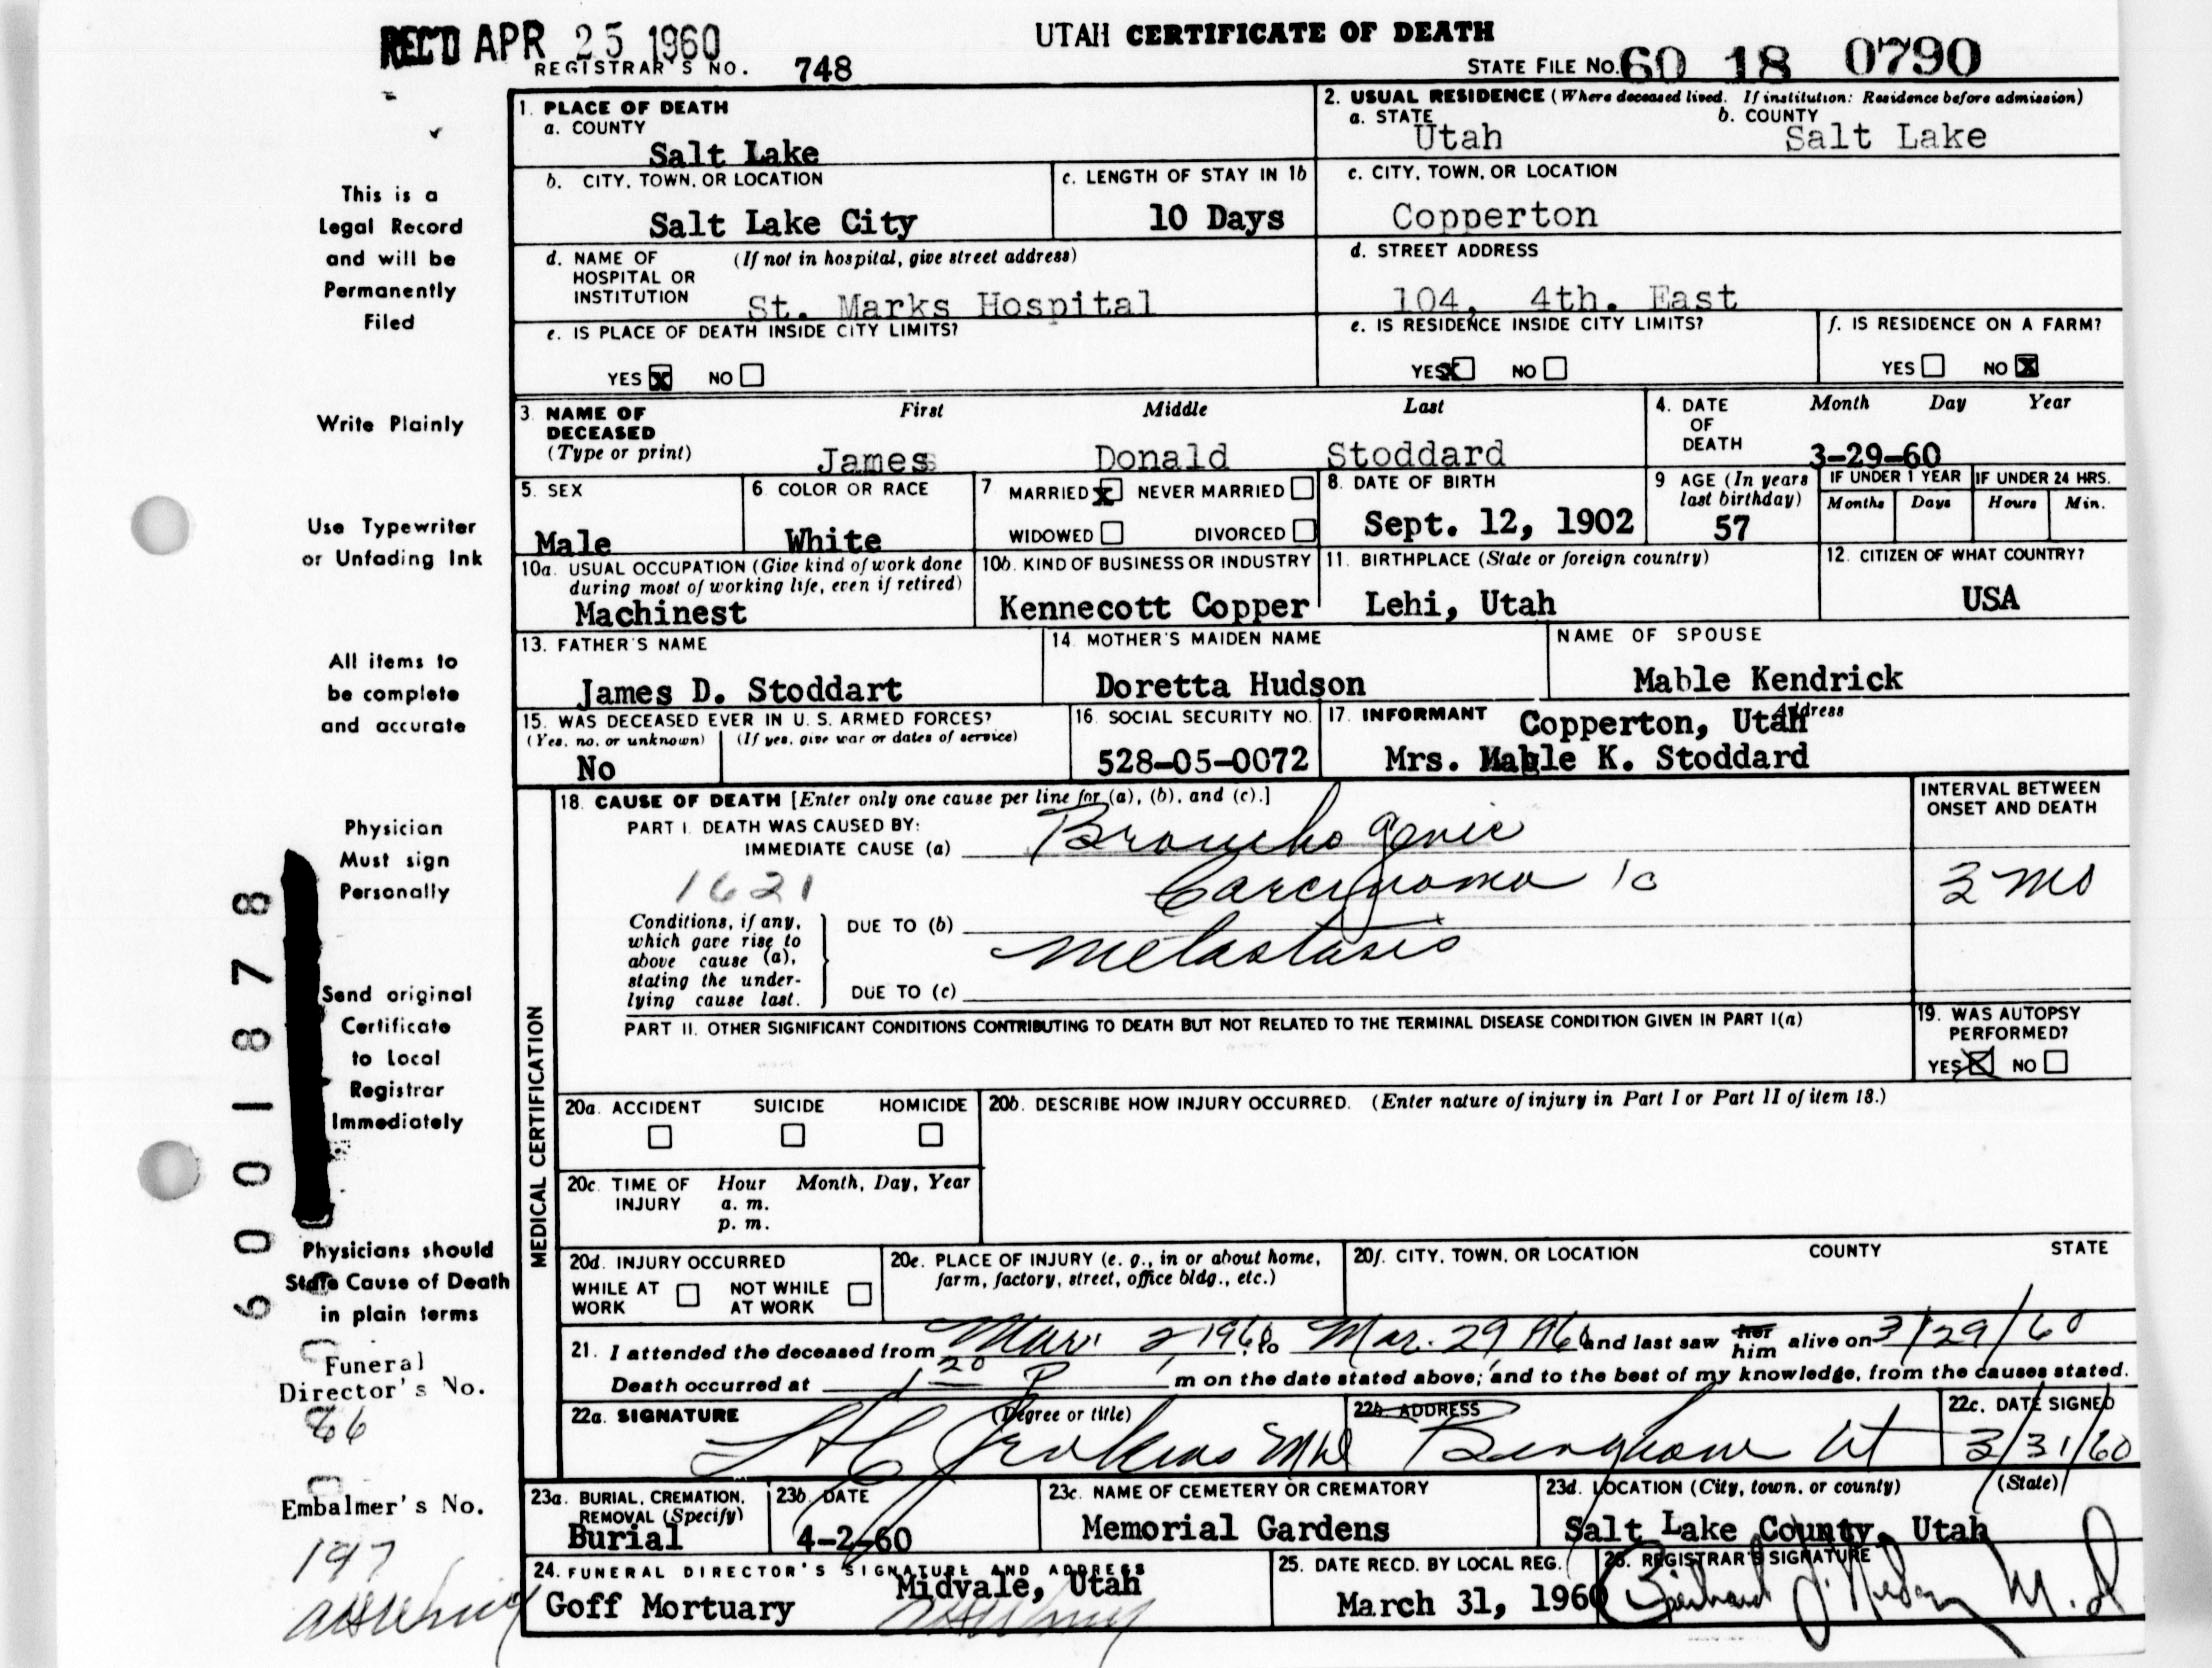 REC'D APR 25 1960
UTAH CERTIFICATE OF DEATH
REGISTRAR'S NO. 748
STATE FILE NO. 60 18 0790
1. PLACE OF DEATH
a. COUNTY
Salt Lake
2. USUAL RESIDENCE (Where deceased lived. If institution: Residence before admission)
a. STATE
Utah
b. COUNTY
Salt Lake
b. CITY, TOWN, OR LOCATION
Salt Lake City
c. LENGTH OF STAY IN 1b
10 Days
c. CITY, TOWN, OR LOCATION
Copperton
d. NAME OF HOSPITAL OR INSTITUTION
(If not in hospital, give street address)
St. Marks Hospital
d. STREET ADDRESS
104, 4th. East
e. IS PLACE OF DEATH INSIDE CITY LIMITS?
YES X NO
e. IS RESIDENCE INSIDE CITY LIMITS?
YES X NO
f. IS RESIDENCE ON A FARM?
YES NO X
3. NAME OF DECEASED
(Type or print)
First Middle Last
James Donald Stoddard
4. DATE OF DEATH
Month Day Year
3-29-60
5. SEX
Male
6 COLOR OR RACE
White
7 MARRIED X NEVER MARRIED
WIDOWED DIVORCED
8. DATE OF BIRTH
Sept. 12, 1902
9 AGE (In years last birthday)
57
IF UNDER 1 YEAR
Months Days
IF UNDER 24 HRS.
Hours Min.
10a. USUAL OCCUPATION (Give kind of work done
during most of working life, even if retired)
Machinest
10b. KIND OF BUSINESS OR INDUSTRY
Kennecott Copper
11. BIRTHPLACE (State or foreign country)
Lehi, Utah
12. CITIZEN OF WHAT COUNTRY?
USA
13. FATHER'S NAME
James D. Stoddart
14. MOTHER'S MAIDEN NAME
Doretta Hudson
NAME OF SPOUSE
Mable Kendrick
15. WAS DECEASED EVER IN U. S. ARMED FORCES?
(Yes, no, or unknown) (If yes, give war or dates of service)
No
16. SOCIAL SECURITY NO.
528-05-0072
17. INFORMANT
Address
Copperton, Utah
Mrs. Mable K. Stoddard
MEDICAL CERTIFICATION
18. CAUSE OF DEATH [Enter only one cause per line for (a), (b), and (c).]
INTERVAL BETWEEN
ONSET AND DEATH
PART I. DEATH WAS CAUSED BY:
IMMEDIATE CAUSE (a) Bronchogenic
1621
Carcinoma
3 mo
Conditions, if any,
which gave rise to
above cause (a),
stating the under-
lying cause last.
DUE TO (b)
metastasis
DUE TO (c)
PART II. OTHER SIGNIFICANT CONDITIONS CONTRIBUTING TO DEATH BUT NOT RELATED TO THE TERMINAL DISEASE CONDITION GIVEN IN PART I(a)
19. WAS AUTOPSY PERFORMED?
YES X NO
20a. ACCIDENT SUICIDE HOMICIDE
20b. DESCRIBE HOW INJURY OCCURRED. (Enter nature of injury in Part I or Part II of item 18.)
20c. TIME OF INJURY
Hour Month, Day, Year
a. m.
p. m.
20d. INJURY OCCURRED
WHILE AT WORK
NOT WHILE AT WORK
20e. PLACE OF INJURY (e. g., in or about home,
farm, factory, street, office bldg., etc.)
20f. CITY, TOWN, OR LOCATION COUNTY STATE
21. I attended the deceased from Mar. 2, 1960 to Mar. 29 1960 and last saw her him alive on 3/29/60
Death occurred at 1 20 P m on the date stated above; and to the best of my knowledge, from the causes stated.
22a. SIGNATURE (Degree or title)
Jenkins MD
22b. ADDRESS
Bingham Ut
22c. DATE SIGNED
3/31/60
23a. BURIAL, CREMATION, REMOVAL (Specify)
Burial
23b. DATE
4-2-60
23c. NAME OF CEMETERY OR CREMATORY
Memorial Gardens
23d. LOCATION (City, town, or county) (State)
Salt Lake County, Utah
24. FUNERAL DIRECTOR'S SIGNATURE AND ADDRESS
Midvale, Utah
Goff Mortuary
25. DATE RECD. BY LOCAL REG.
March 31, 1960
26. REGISTRAR'S SIGNATURE
M.D
This is a
Legal Record
and will be
Permanently
Filed
Write Plainly
Use Typewriter
or Unfading Ink
All items to
be complete
and accurate
Physician
Must sign
Personally
Send original
Certificate
to Local
Registrar
Immediately
Physicians should
State Cause of Death
in plain terms
Funeral
Director's No.
86
Embalmer's No.
197
6001878